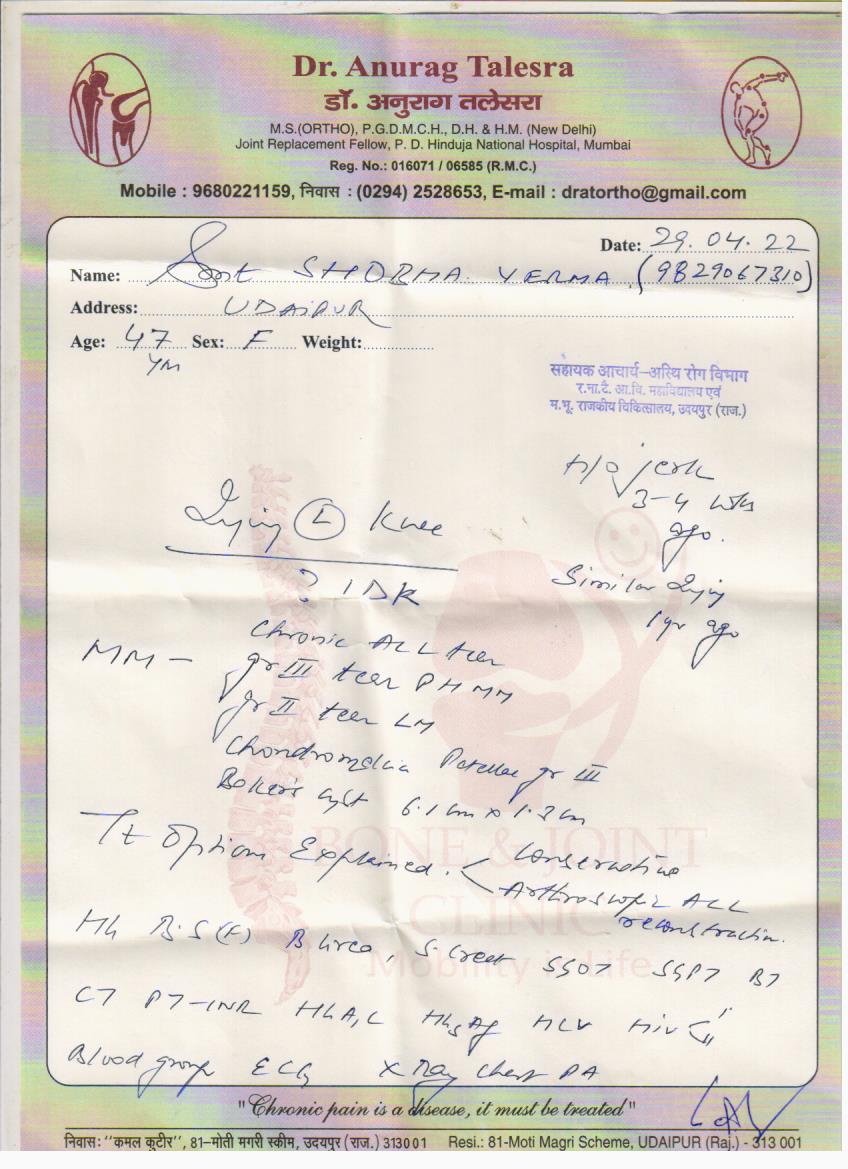 Dr. Anurag Talesra
डॉ. अनुराग तलेसरा
M.S.(ORTHO), P.G.D.M.C.H., D.H. & H.M. (New Delhi)
Joint Replacement Fellow, P. D. Hinduja National Hospital, Mumbai
Reg. No.: 016071 / 06585 (R.M.C.)
Mobile : 9680221159, निवास : (0294) 2528653, E-mail : dratortho@gmail.com
Date: 29.04.22
Name: Smt SHOBHA VERMA (9829067310)
Address: UDAIPUR
Age: 47 Sex: F Weight:
सहायक आचार्य–अस्थि रोग विभाग
र.ना.टै. आ.वि. महाविद्यालय एवं
म.भू. राजकीय चिकित्सालय, उदयपुर (राज.)
H/o jerk
3-4 wks
ago.
Injury (L) Knee
? IDK
Similar Injury
1 yr ago
Chronic ACL tear
gr III tear PHMM
gr II tear LM
Chondromalacia Patellae gr III
Baker's cyst 6.1 cm x 1.3 cm
Tt Options Explained. < Conservative
Arthroscopic ACL
reconstruction.
BONE & JOINT
CLINIC
Mobility is Life
Hb B.S (F) B Urea, S. Creat SGOT SGPT BT
CT PT-INR HbA1C HbsAg HCV HIV I II
Blood group ECG X Ray Chest PA
"Chronic pain is a disease, it must be treated"
निवास: "कमल कुटीर", 81–मोती मगरी स्कीम, उदयपुर (राज.) 313001 Resi.: 81-Moti Magri Scheme, UDAIPUR (Raj.) - 313 001